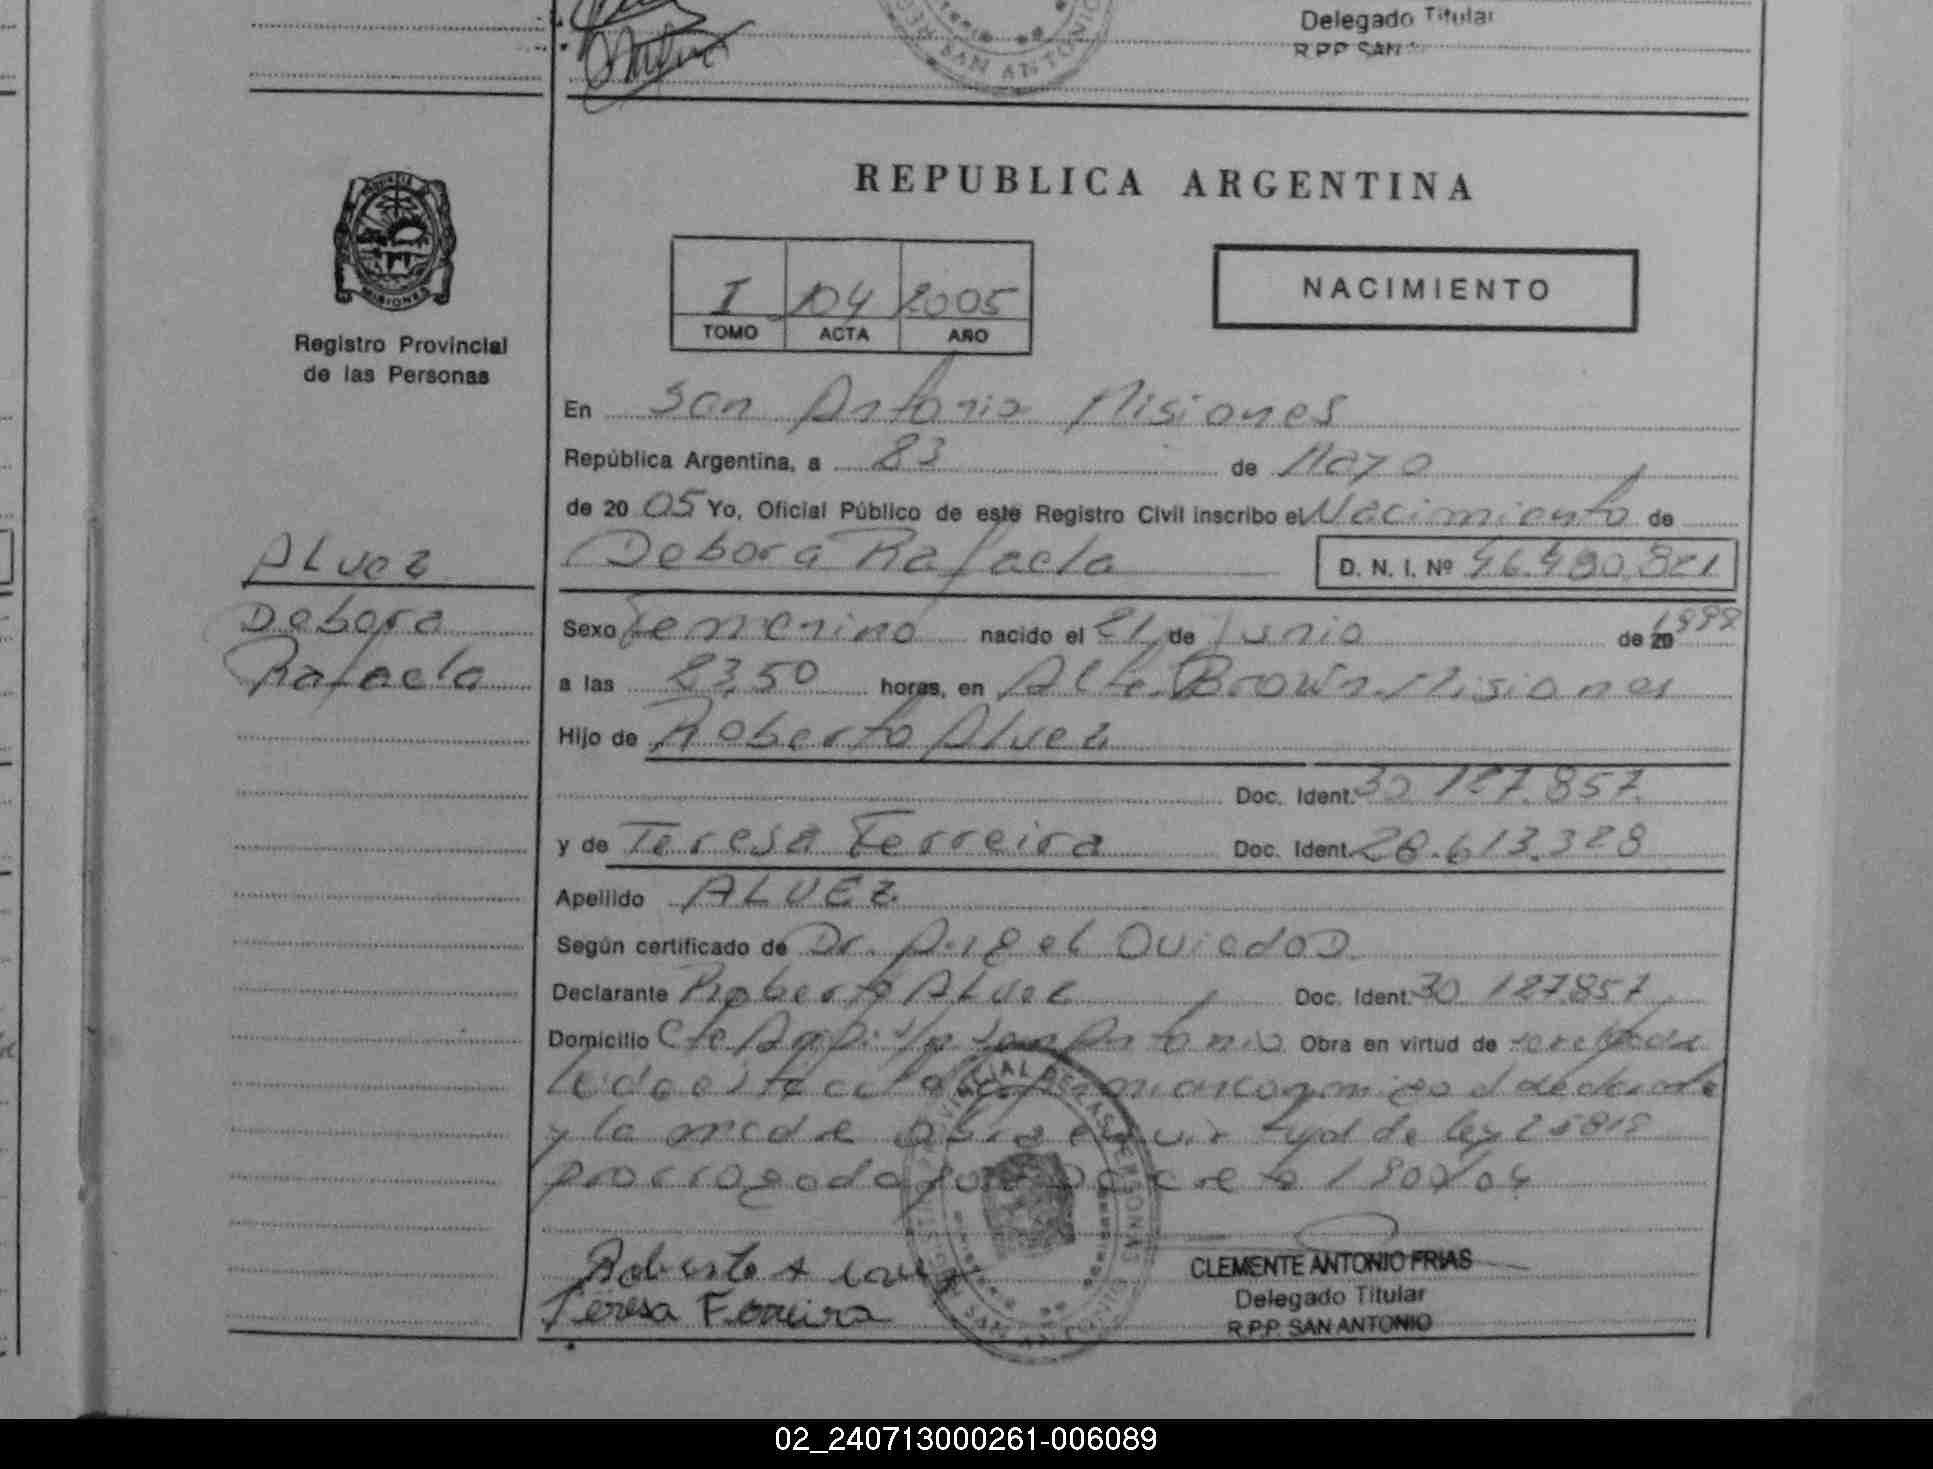 Delegado Titular
R.P.P. SAN
SAN ANTONIO
REPUBLICA ARGENTINA
MISIONES
I 104 2005
TOMO ACTA AÑO
NACIMIENTO
Registro Provincial
de las Personas
En San Antonio Misiones
República Argentina, a 23 de Mayo
de 20 05 Yo, Oficial Público de este Registro Civil inscribo el Nacimiento de
Debora Rafaela D. N. I. Nº
ALvez
Debora
Rafaela
Sexo Femenino nacido el 21 de Junio de 20
a las 23,50 horas, en Alte. Brown Misiones
Hijo de Roberto Alvez
Doc. Ident. 30 127.857
y de Teresa Ferreira Doc. Ident. 28.613.328
Apellido ALVEZ
Según certificado de Dr. Angel Oviedo D.
Declarante Roberto ALvez Doc. Ident. 30 127857
Domicilio San Antonio Obra en virtud de
y la madre de ley
prorrogada 1800/04
Teresa Ferreira
CLEMENTE ANTONIO FRIAS
Delegado Titular
R.P.P. SAN ANTONIO
02_240713000261-006089